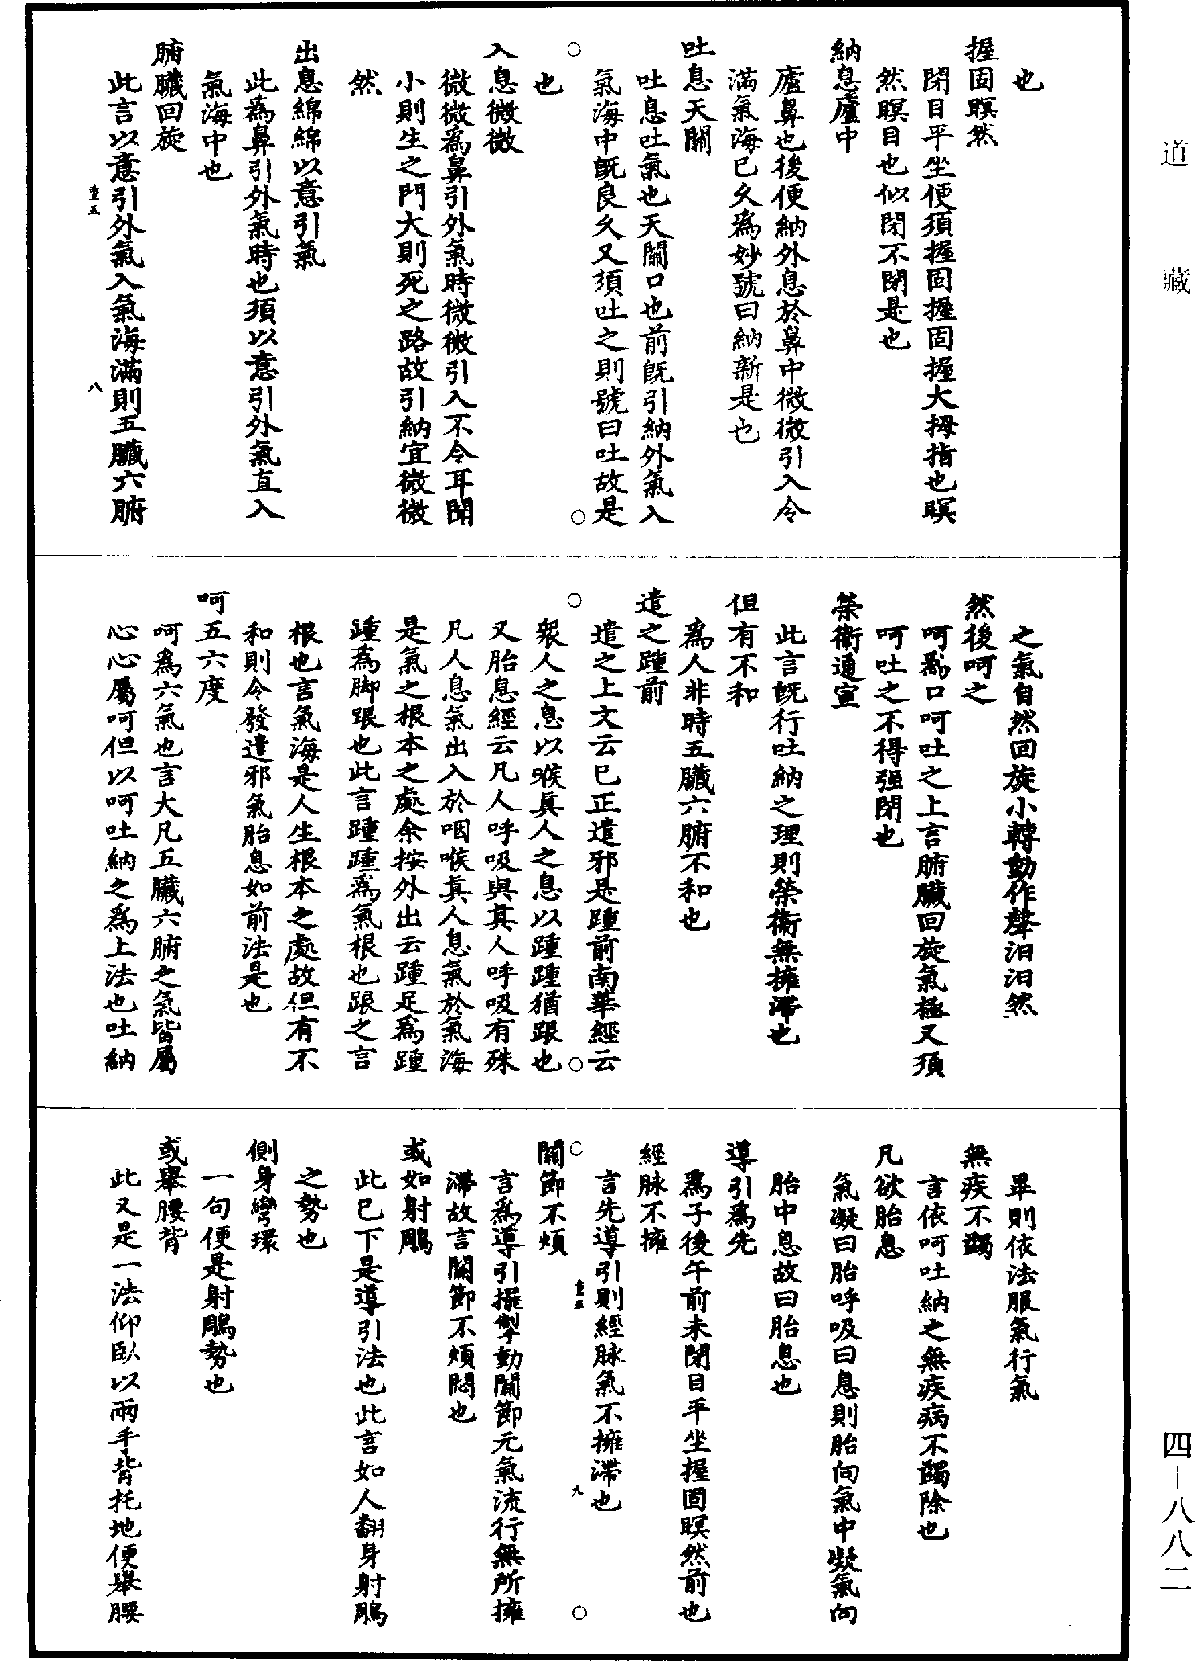 道藏
也
握固瞑然
閉目平坐便須握固握固握大拇指也瞑
然瞑目也似閉不閉是也
納息廬中
廬鼻也後便納外息於鼻中微微引入令
滿氣海已久爲妙號曰納新是也
吐息天關
吐息吐氣也天關口也前旣引納外氣入
氣海中旣良久又須吐之則號曰吐故是
也
入息微微
微微爲鼻引外氣時微微引入不令耳聞
小則生之門大則死之路故引納宜微微
然
出息綿綿以意引氣
此爲鼻引外氣時也須以意引外氣直入
氣海中也
腑臟回旋
此言以意引外氣入氣海滿則五臟六腑
八
之氣自然回旋小轉動作聲汩汩然
然後呵之
呵爲口呵吐之上言腑臟回旋氣極又須
呵吐之不得强閉也
榮衛通宣
此言旣行吐納之理則榮衛無擁滯也
但有不和
爲人非時五臟六腑不和也
遣之踵前
遣之上文云已正遣邪是踵前南華經云
衆人之息以喉眞人之息以踵踵猶跟也
又胎息經云凡人呼吸與眞人呼吸有殊
凡人息氣出入於咽喉眞人息氣於氣海
是氣之根本之處余按外出云踵足爲踵
踵爲脚跟也此言踵踵爲氣根也跟之言
根也言氣海是人生根本之處故但有不
和則令發遣邪氣胎息如前法是也
呵五六度
呵爲六氣也言大凡五臟六腑之氣皆屬
心心屬呵但以呵吐納之爲上法也吐納
畢則依法服氣行氣
無疾不蠲
言依呵吐納之無疾病不蠲除也
凡欲胎息
氣凝曰胎呼吸曰息則胎向氣中凝氣向
胎中息故曰胎息也
導引爲先
爲子後午前未閉目平坐握固瞑然前也
經脉不擁
言先導引則經脉氣不擁滯也
九
關節不煩
言爲導引擺掣動關節元氣流行無所擁
滯故言關節不煩悶也
或如射鵰
此已下是導引法也此言如人翻身射鵰
之勢也
側身彎環
一句便是射鵰勢也
或舉腰背
此又是一法仰臥以兩手背托地便舉腰
四—八八二